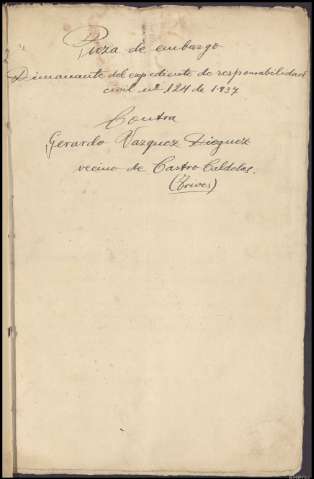 Pieza de embargo
Dimanante del expediente de responsabilidad
civil nº 124 de 1937
Contra
Gerardo Vazquez Dieguez
vecino de Castro Caldelas.
(Trives)